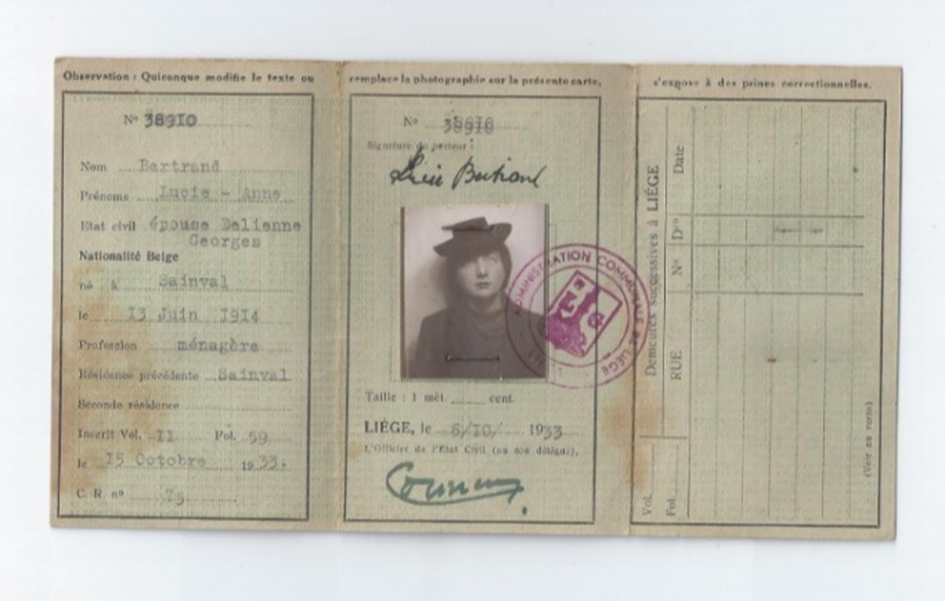 Observation : Quiconque modifie le texte ou remplace la photographie sur la présente carte, s'expose à des peines correctionnelles.
Nº 38910
Nom Bertrand
Prénoms Lucie - Anne
Etat civil épouse Delienne
Georges
Nationalité Belge
né à Sainval
le 13 Juin 1914
Profession ménagère
Résidence précédente Sainval
Seconde résidence
Inscrit Vol. II Fol. 59
le 15 Octobre 1933.
C. R. nº 79
Nº 38910
Signature du porteur :
Bertrand
ADMINISTRATION COMMUNALE DE LIÉGE
Taille : 1 mèt. cent.
LIÉGE, le 6/10/ 1933
L'Officier de l'Etat Civil (ou son délégué),
Demeures successives à LIÉGE
Date
Nº
RUE
Vol.
Fol.
(Voir au verso)